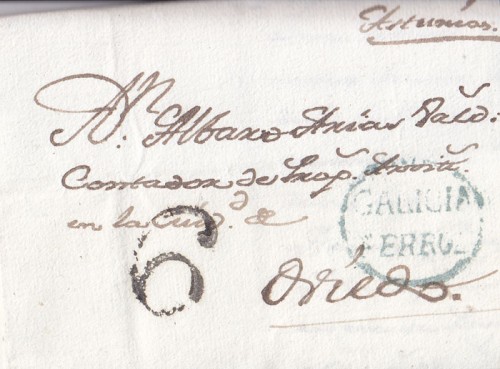 Asturias.
A Dn. Albaro Arias Vald.
Contador de Prop. Arvitr.
en la Ciud.d de
GALICIA
FERROL
6 Oviedo.